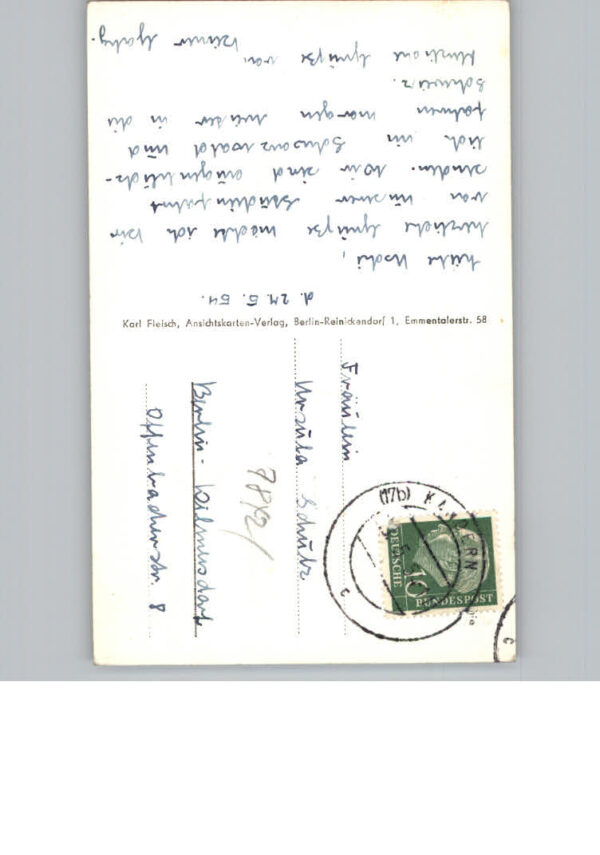 d. 24. 5. 54.
Liebe Uschi,
herzliche Grüße möchte ich Dir
von unserer Studienfahrt
senden. Wir sind augenblick-
lich im Schwarzwald und
fahren morgen weiter in die
Schweiz.
Herzliche Grüße von
Deiner
Karl Fleisch, Ansichtskarten-Verlag, Berlin-Reinickendorf 1, Emmentalerstr. 58
Fräulein
Ursula Schulz
Berlin-Wilmersdorf
Offenbacherstr. 8
(17b) KANDERN
c
DEUTSCHE
BUNDESPOST
10
c